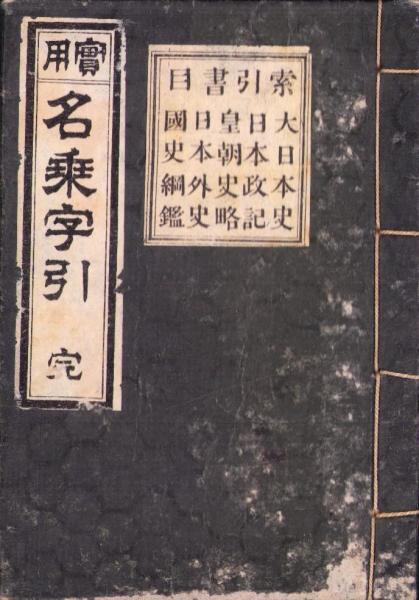 實用
名乗字引
完
索引書目
大日本史
日本政記
皇朝史略
日本外史
國史綱鑑